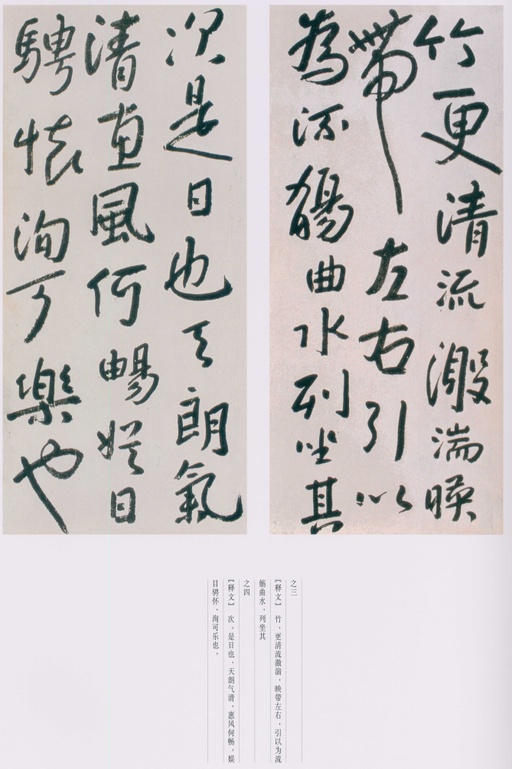 竹更清流激湍暎
帶左右引以
為流觴曲水列坐其
次是日也天朗氣
清惠風何暢娱目
騁懷洵可樂也
之三
【释文】 竹，更清流激湍，映带左右，引以为流
觞曲水，列坐其
之四
【释文】 次，是日也，天朗气清，惠风何畅，娱
目骋怀，洵可乐也。